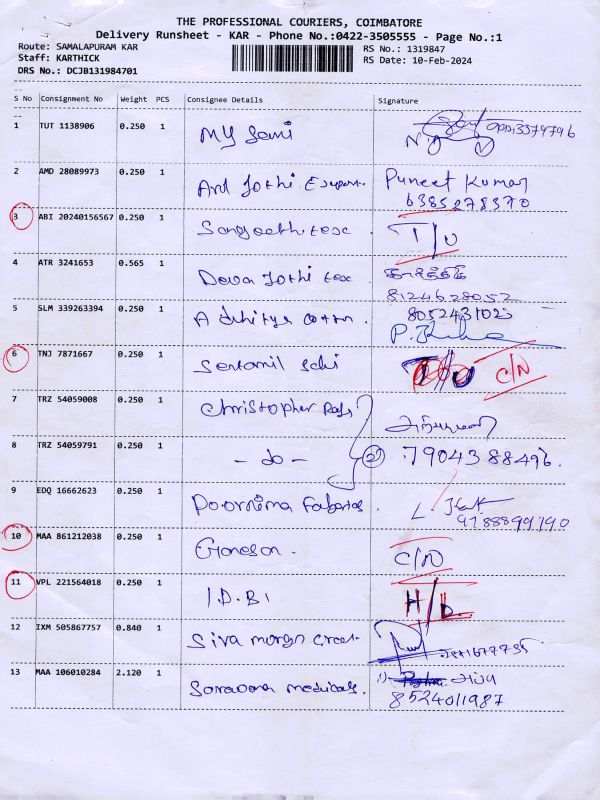 THE PROFESSIONAL COURIERS, COIMBATORE
Delivery Runsheet - KAR - Phone No.:0422-3505555 - Page No.:1
Route: SAMALAPURAM KAR RS No.: 1319847
Staff: KARTHICK RS Date: 10-Feb-2024
DRS No.: DCJB131984701
S No Consignment No Weight PCS Consignee Details Signature
1 TUT 1138906 0.250 1 My Sami
2 AMD 28089973 0.250 1 Puneet Kumar
6385278370
3 ABI 20240156567 0.250 1 Sangeetha tex T/U
4 ATR 3241653 0.565 1 Deva Jothi tex கார்த்திக்
8124628052
5 SLM 339263394 0.250 1 8052431023
6 TNJ 7871667 0.250 1 T/U C/N
7 TRZ 54059008 0.250 1 Christopher
8 TRZ 54059791 0.250 1 - do - 2 7904388496.
9 EDQ 16662623 0.250 1 Poornima Fabrics
9788899790
10 MAA 861212038 0.250 1 Ganesan. C/N
11 VPL 221564018 0.250 1 I.D.B.I H/D.
12 IXM 505867757 0.840 1 Siva
13 MAA 106010284 2.120 1 Saravana medicals.
8524011987